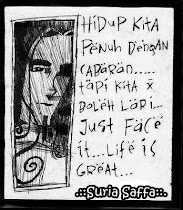 HiDUP KiTA
PENUH DENGAN
CABARAN.....
tAPi KitA X
BOLEH LARi...
JUST FACE
it...LiFE iS
GREAT...
.::Suria Saffa::.